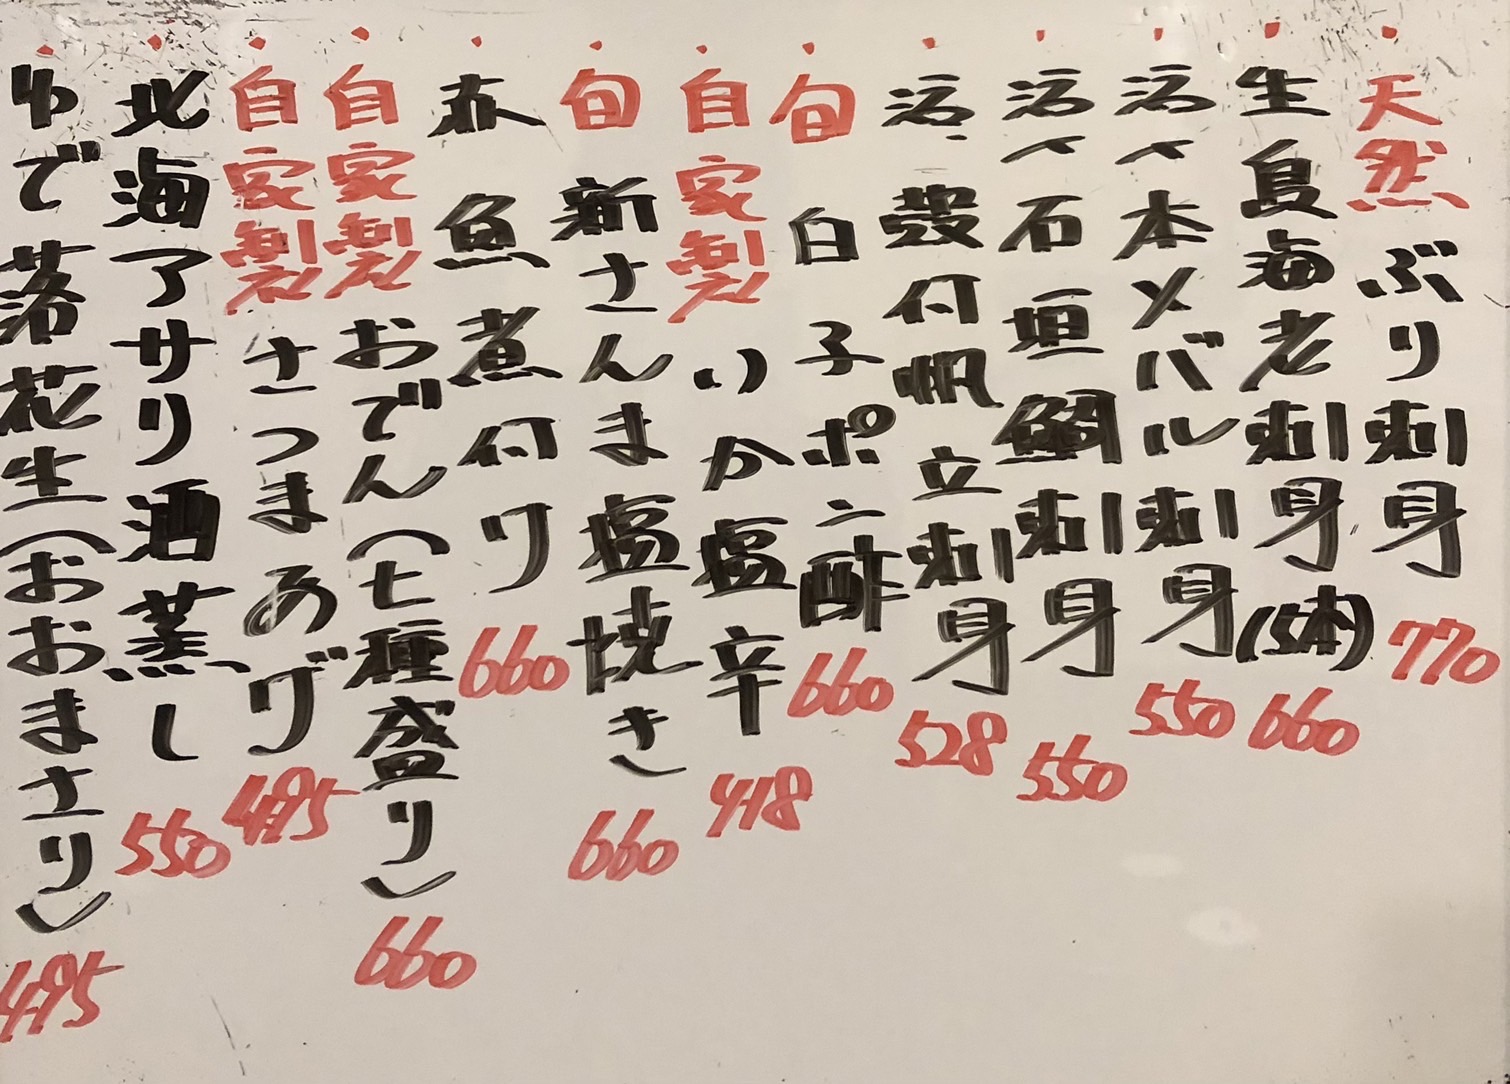 天然ぶり刺身 770
生島海老刺身(5本) 660
活〆本メバル刺身 550
活〆石垣鯛刺身 550
活殻付帆立刺身 528
旬白子ポン酢 660
自家製いか塩辛 418
旬新さんま塩焼き 660
赤魚煮付け 660
自家製おでん(七種盛り) 660
自家製さつまあげ 495
北海アサリ酒蒸し 550
ゆで落花生(おおまさり) 495